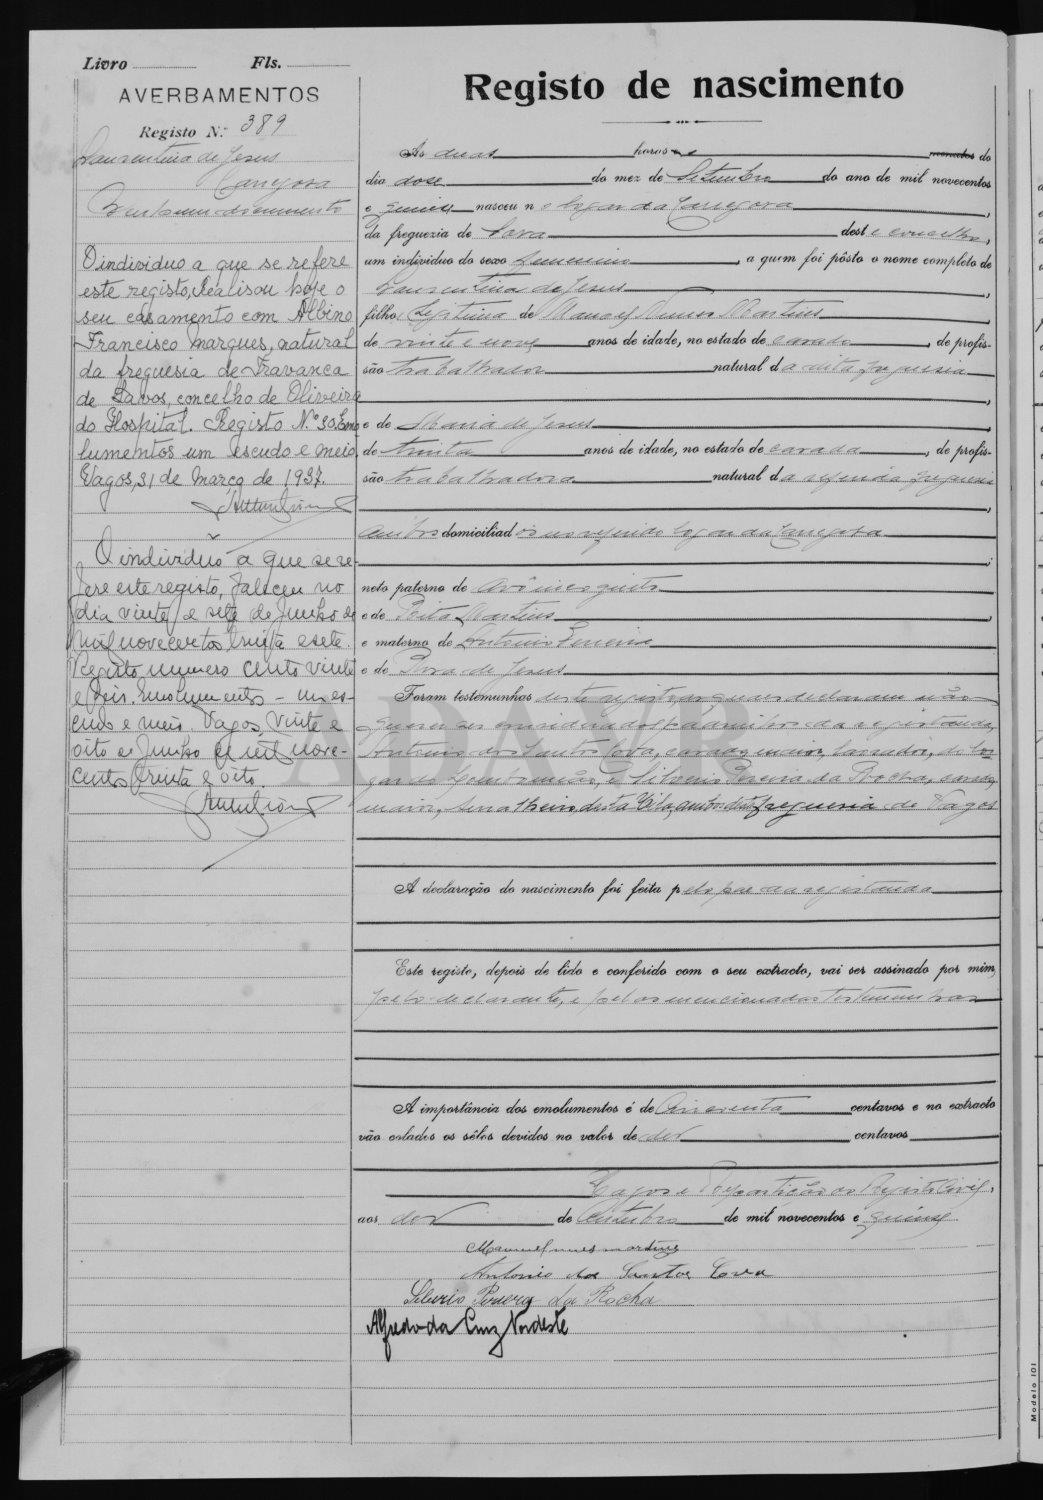 Livro Fls.
AVERBAMENTOS
Registo N.º 389
Laurentina de Jesus
Carregosa
O individuo a que se refere
este registo, realisou hoje o
seu casamento com Albino
Francisco Marques, natural
da freguesia de Travanca
de Lavos, concelho de Oliveira
do Hospital. Registo N.º 30. Emo
lumentos um escudo e meio
Vagos, 31 de Março de 1937.
O individuo a que se re-
fere este registo, faleceu no
dia vinte e sete de Junho de
mil novecentos trinta e sete.
Registo numero cento vinte
e dois. Emolumentos - um es-
cudo e meio. Vagos, vinte e
oito de Junho de mil nove-
centos trinta e oito
Registo de nascimento
Às duas horas e minutos do
dia dose do mez de Setembro do ano de mil novecentos
e quinze nasceu n o logar da Carregosa,
da freguezia de Sosa dest e concelho,
um individuo do sexo femenino, a quem foi pôsto o nome completo de
Laurentina de Jesus,
filho Legitima de Manoel Nunes Martins,
de vinte e nove anos de idade, no estado de casado, de profis-
são trabalhador natural d a dita freguesia
,
e de Maria de Jesus,
de trinta anos de idade, no estado de casada, de profis-
são trabalhadora natural d a referida freguesia
,
ambos domiciliad os no referido logar da Carregosa
;
neto paterno de avô incognito
e de Rosa Martins,
e materno de Antonio Ferreira
e de Rosa de Jesus
Foram testemunhas deste registo as quaes declararam não
querer ser considerados padrinhos da registanda,
Antonio dos Santos Cova, casado, maior, lavrador, do lo-
gar de e Silverio Pereira da Rocha, casado,
maior, desta Vila, ambos desta freguesia de Vagos
A declaração do nascimento foi feita p elo pae da registanda
Este registo, depois de lido e conferido com o seu extracto, vai ser assinado por mim,
pelo declarante, e pelas mencionadas testemunhas
A importância dos emolumentos é de cincoenta centavos e no extracto
vão colados os sêlos devidos no valor de dez centavos
Vagos e Repartição do Registo Civil,
aos dez de Outubro de mil novecentos e quinze
Manuel nunes martins
Antonio dos Santos Cova
Silverio Pereira da Rocha
Alfredo da Cruz Nordeste
Modelo 101